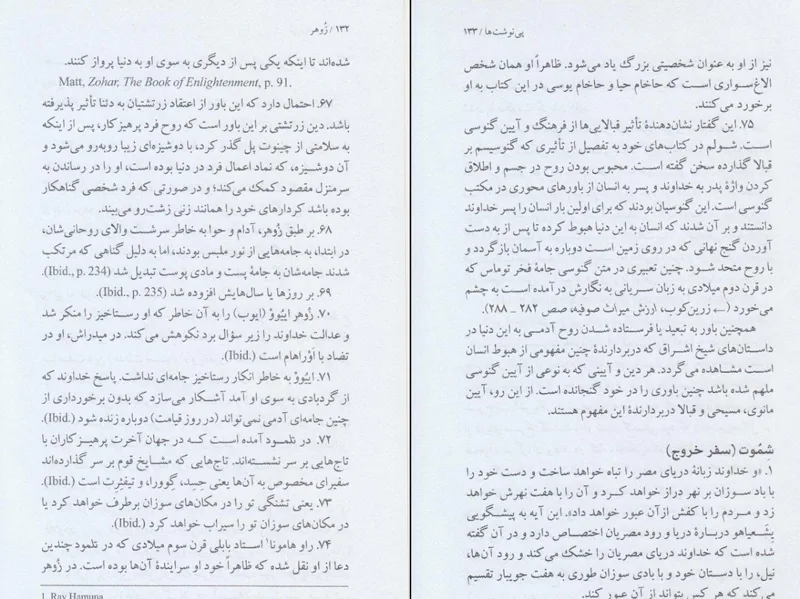 ۱۳۲ / زُوهر
شده‌اند تا اینکه یکی پس از دیگری به سوی او به دنیا پرواز کنند.
Matt, Zohar, The Book of Enlightenment, p. 91.
۶۷. احتمال دارد که این باور از اعتقاد زرتشتیان به دئنا تأثیر پذیرفته
باشد. دین زرتشتی بر این باور است که روح فرد پرهیزکار، پس از اینکه
به سلامتی از چینوت پل گذر کرد، با دوشیزه‌ای زیبا روبه‌رو می‌شود و
آن دوشیزه، که نماد اعمال فرد در دنیا بوده است، او را در رساندن به
سرمنزل مقصود کمک می‌کند؛ و در صورتی که فرد شخصی گناهکار
بوده باشد کردارهای خود را همانند زنی زشت‌رو می‌بیند.
۶۸. بر طبق زُوهر، آدام و حوا به خاطر سرشت والای روحانی‌شان،
در ابتدا، به جامه‌هایی از نور ملبس بودند، اما به دلیل گناهی که مرتکب
شدند جامه‌شان به جامهٔ پست و مادی پوست تبدیل شد (Ibid., p. 234).
۶۹. بر روزها یا سال‌هایش افزوده شد (Ibid., p. 235).
۷۰. زُوهر ایُیوُوْ (ایوب) را به آن خاطر که او رستاخیز را منکر شد
و عدالت خداوند را زیر سؤال برد نکوهش می‌کند. در میدراش، او در
تضاد با اَوْراهام است (Ibid.).
۷۱. ایُیوُوْ به خاطر انکار رستاخیز جامه‌ای نداشت. پاسخ خداوند که
از گردبادی به سوی او آمد آشکار می‌سازد که بدون برخورداری از
چنین جامه‌ای آدمی نمی‌تواند (در روز قیامت) دوباره زنده شود (Ibid.).
۷۲. در تلمود آمده است که در جهان آخرت پرهیزکاران با
تاج‌هایی بر سر نشسته‌اند. تاج‌هایی که مشایخ قوم بر سر گذارده‌اند
سفیرای مخصوص به آن‌ها یعنی حِسِد، گِوورا، و تیفئِرِت است (Ibid.).
۷۳. یعنی تشنگی تو را در مکان‌های سوزان برطرف خواهد کرد یا
در مکان‌های سوزان تو را سیراب خواهد کرد (Ibid.).
۷۴. راو هامونا۱ استاد بابلی قرن سوم میلادی که در تلمود چندین
دعا از او نقل شده که ظاهراً خود او سرایندهٔ آن‌ها بوده است. در زُوهر
1. Rav Hamuna
پی‌نوشت‌ها / ۱۳۳
نیز از او به عنوان شخصیتی بزرگ یاد می‌شود. ظاهراً او همان شخص
الاغ‌سواری است که حاخام حیا و حاخام یوسی در این کتاب به او
برخورد می‌کنند.
۷۵. این گفتار نشان‌دهندهٔ تأثیر قبالایی‌ها از فرهنگ و آیین گنوسی
است. شولم در کتاب‌های خود به تفصیل از تأثیری که گنوسیسم بر
قبالا گذارده سخن گفته است. محبوس بودن روح در جسم و اطلاق
کردن واژهٔ پدر به خداوند و پسر به انسان از باورهای محوری در مکتب
گنوسی است. این گنوسیان بودند که برای اولین بار انسان را پسر خداوند
دانستند و بر آن شدند که انسان به این دنیا هبوط کرده تا پس از به دست
آوردن گنج نهانی که در روی زمین است دوباره به آسمان بازگردد و
با روح متحد شود. چنین تعبیری در متن گنوسی جامهٔ فخر توماس که
در قرن دوم میلادی به زبان سریانی به نگارش درآمده است به چشم
می‌خورد (← زرین‌کوب، ارزش میراث صوفیه، صص ۲۸۲ ـ ۲۸۸).
همچنین باور به تبعید یا فرستاده شدن روح آدمی به این دنیا در
داستان‌های شیخ اشراق که دربردارندهٔ چنین مفهومی از هبوط انسان
است مشاهده می‌گردد. هر دین و آیینی که به نوعی از آیین گنوسی
ملهم شده باشد چنین باوری را در خود گنجانده است. از این رو، آیین
مانوی، مسیحی و قبالا دربردارندهٔ این مفهوم هستند.
شمُوت (سفر خروج)
۱. «و خداوند زبانهٔ دریای مصر را تباه خواهد ساخت و دست خود را
با باد سوزان بر نهر دراز خواهد کرد و آن را با هفت نهرش خواهد
زد و مردم را با کفش از آن عبور خواهد داد». این آیه به پیشگویی
یِشَعیاهو دربارهٔ دریا و رود مصریان اختصاص دارد و در آن گفته
شده است که خداوند دریای مصریان را خشک می‌کند و رود آن‌ها،
نیل، را با دستان خود و با بادی سوزان طوری به هفت جویبار تقسیم
می‌کند که هر کس بتواند از آن عبور کند.